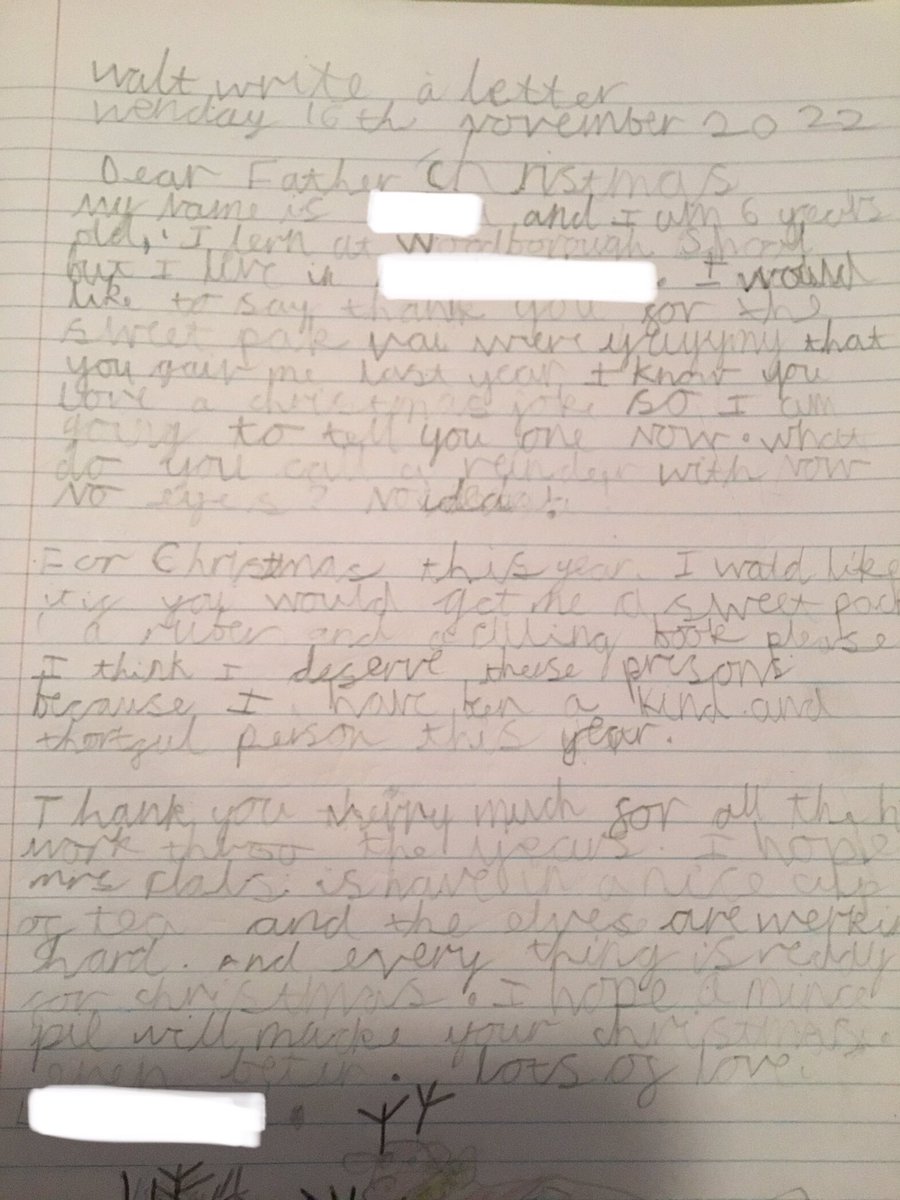 walt write a letter
wenday 16th november 2022
Dear Father Christmas
my name is and I am 6 years
old, I lern at Woodborough School
but I live in . I would
like to say thank you for the
sweet pak you were yuyymy that
you gave me last year I know you
love a christmas joke so I am
going to tell you one now. what
do you call a reinder with now
no eyes? No idea!
For Christmas this year I wald like
it if you would get me a sweet pack
a ruber and a cilling book please
I think I deserve theese prisons
because I have ben a kind and
thortful person this year.
Thank you much for all the h
work throo the years. I hople
mrs is havein a nice cup
of tea and the elves are werkin
hard. and every thing is reddy
for christmas. I hope a mince
pie will macke your christmas
even beter. Lots of love.